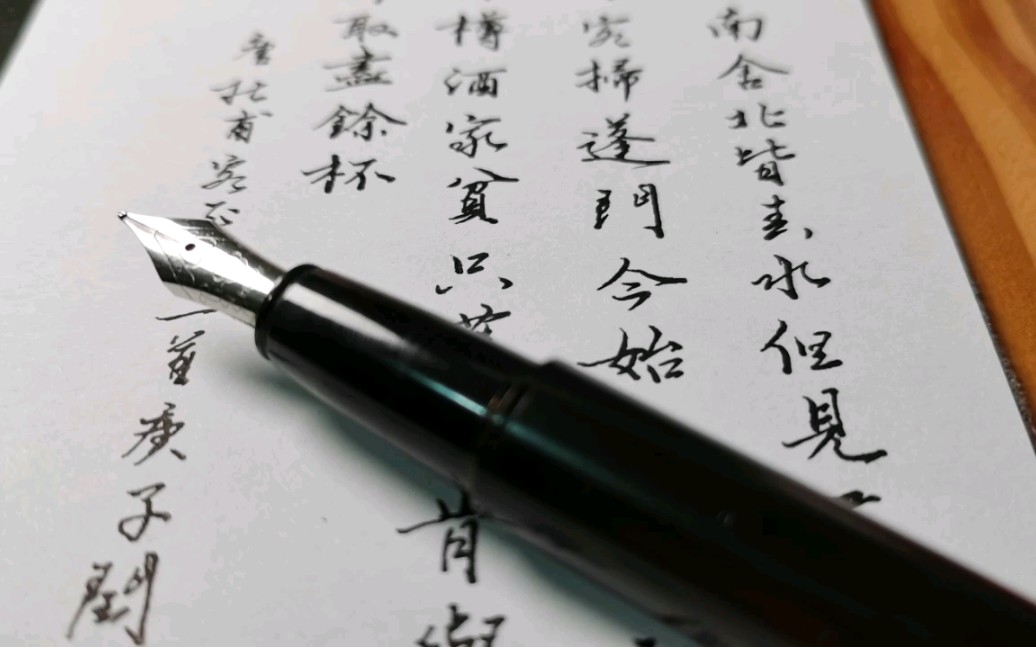 南舍北皆春水但見
客掃蓬門今始
樽酒家貧只舊肯與
取盡餘杯
唐杜甫客至一首庚子閏